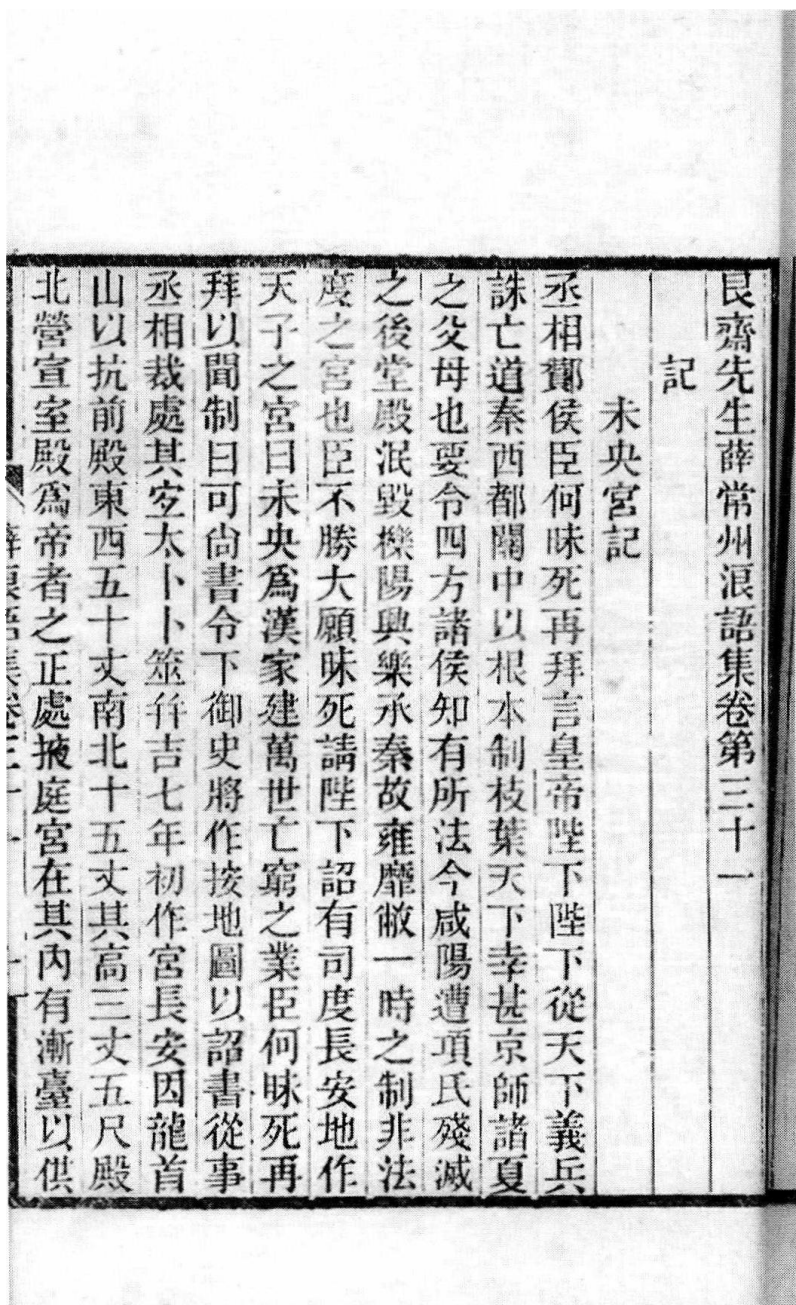 艮齋先生薛常州浪語集卷第三十一
記
未央宮記
丞相酇侯臣何昧死再拜言皇帝陛下陛下從天下義兵
誅亡道秦西都關中以根本制枝葉天下幸甚京師諸夏
之父母也要令四方諸侯知有所法今咸陽遭項氏殘滅
之後堂殿泯毀櫟陽興樂承秦故雍靡敝一時之制非法
度之宮也臣不勝大願昧死請陛下詔有司度長安地作
天子之宮曰未央爲漢家建萬世亡窮之業臣何昧死再
拜以聞制曰可尚書令下御史將作按地圖以詔書從事
丞相裁處其宐太卜卜筮幷吉七年初作宮長安因龍首
山以抗前殿東西五十丈南北十五丈其高三丈五尺殿
北營宣室殿爲帝者之正處掖庭宮在其內有漸臺以供
浪語集卷三十一